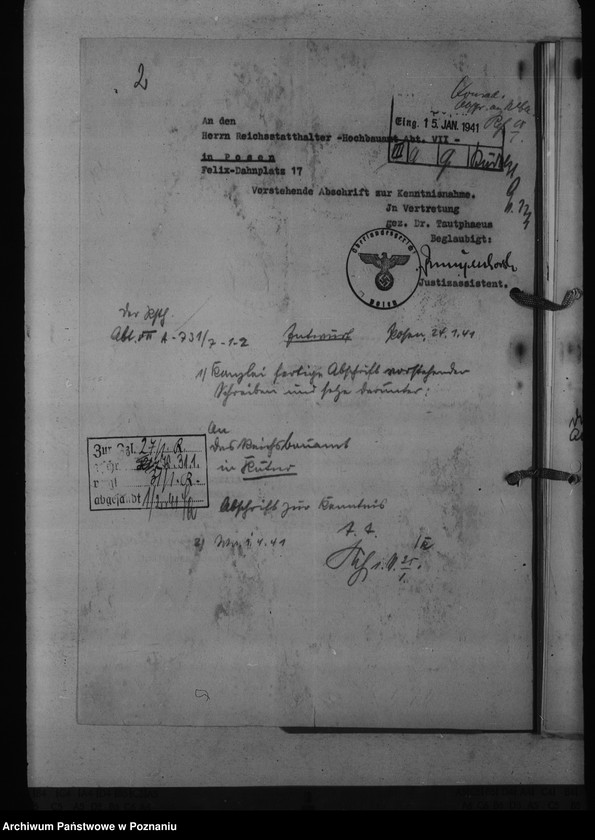 2
An den
Herrn Reichsstatthalter -Hochbauamt Abt. VII -
in Posen
Felix-Dahnplatz 17
Eing. 15. JAN. 1941
III a 9
Vorstehende Abschrift zur Kenntnisnahme.
Jn Vertretung
gez. Dr. Tautphaeus
Beglaubigt:
Oberlandesgericht
Posen
Justizassistent.
Der
Abt. VII A - 731/7 - 1-2 Entwurf Posen, 24.1.41
1) Kanzlei fertige Abschrift vorstehender
Schreiben und setze darunter:
An
das Reichsbauamt
in Kutno
Zur Kzl. 27/1.
31.1.
abgesandt 1/2.41
Abschrift zur Kenntnis
2) Wv. 1.4.41
I. A.
i.V. 25/1.
Archiwum Państwowe w Poznaniu